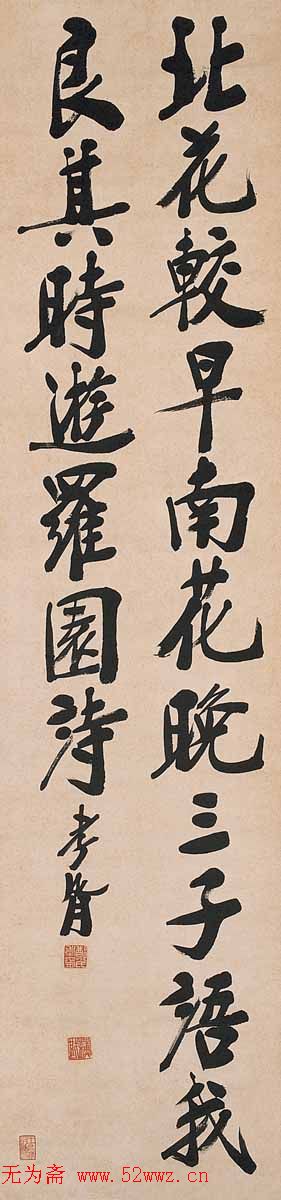 北花較早南花晚三子語我
良其時遊羅園詩
孝胥
无为斋 www.52wwz.cn